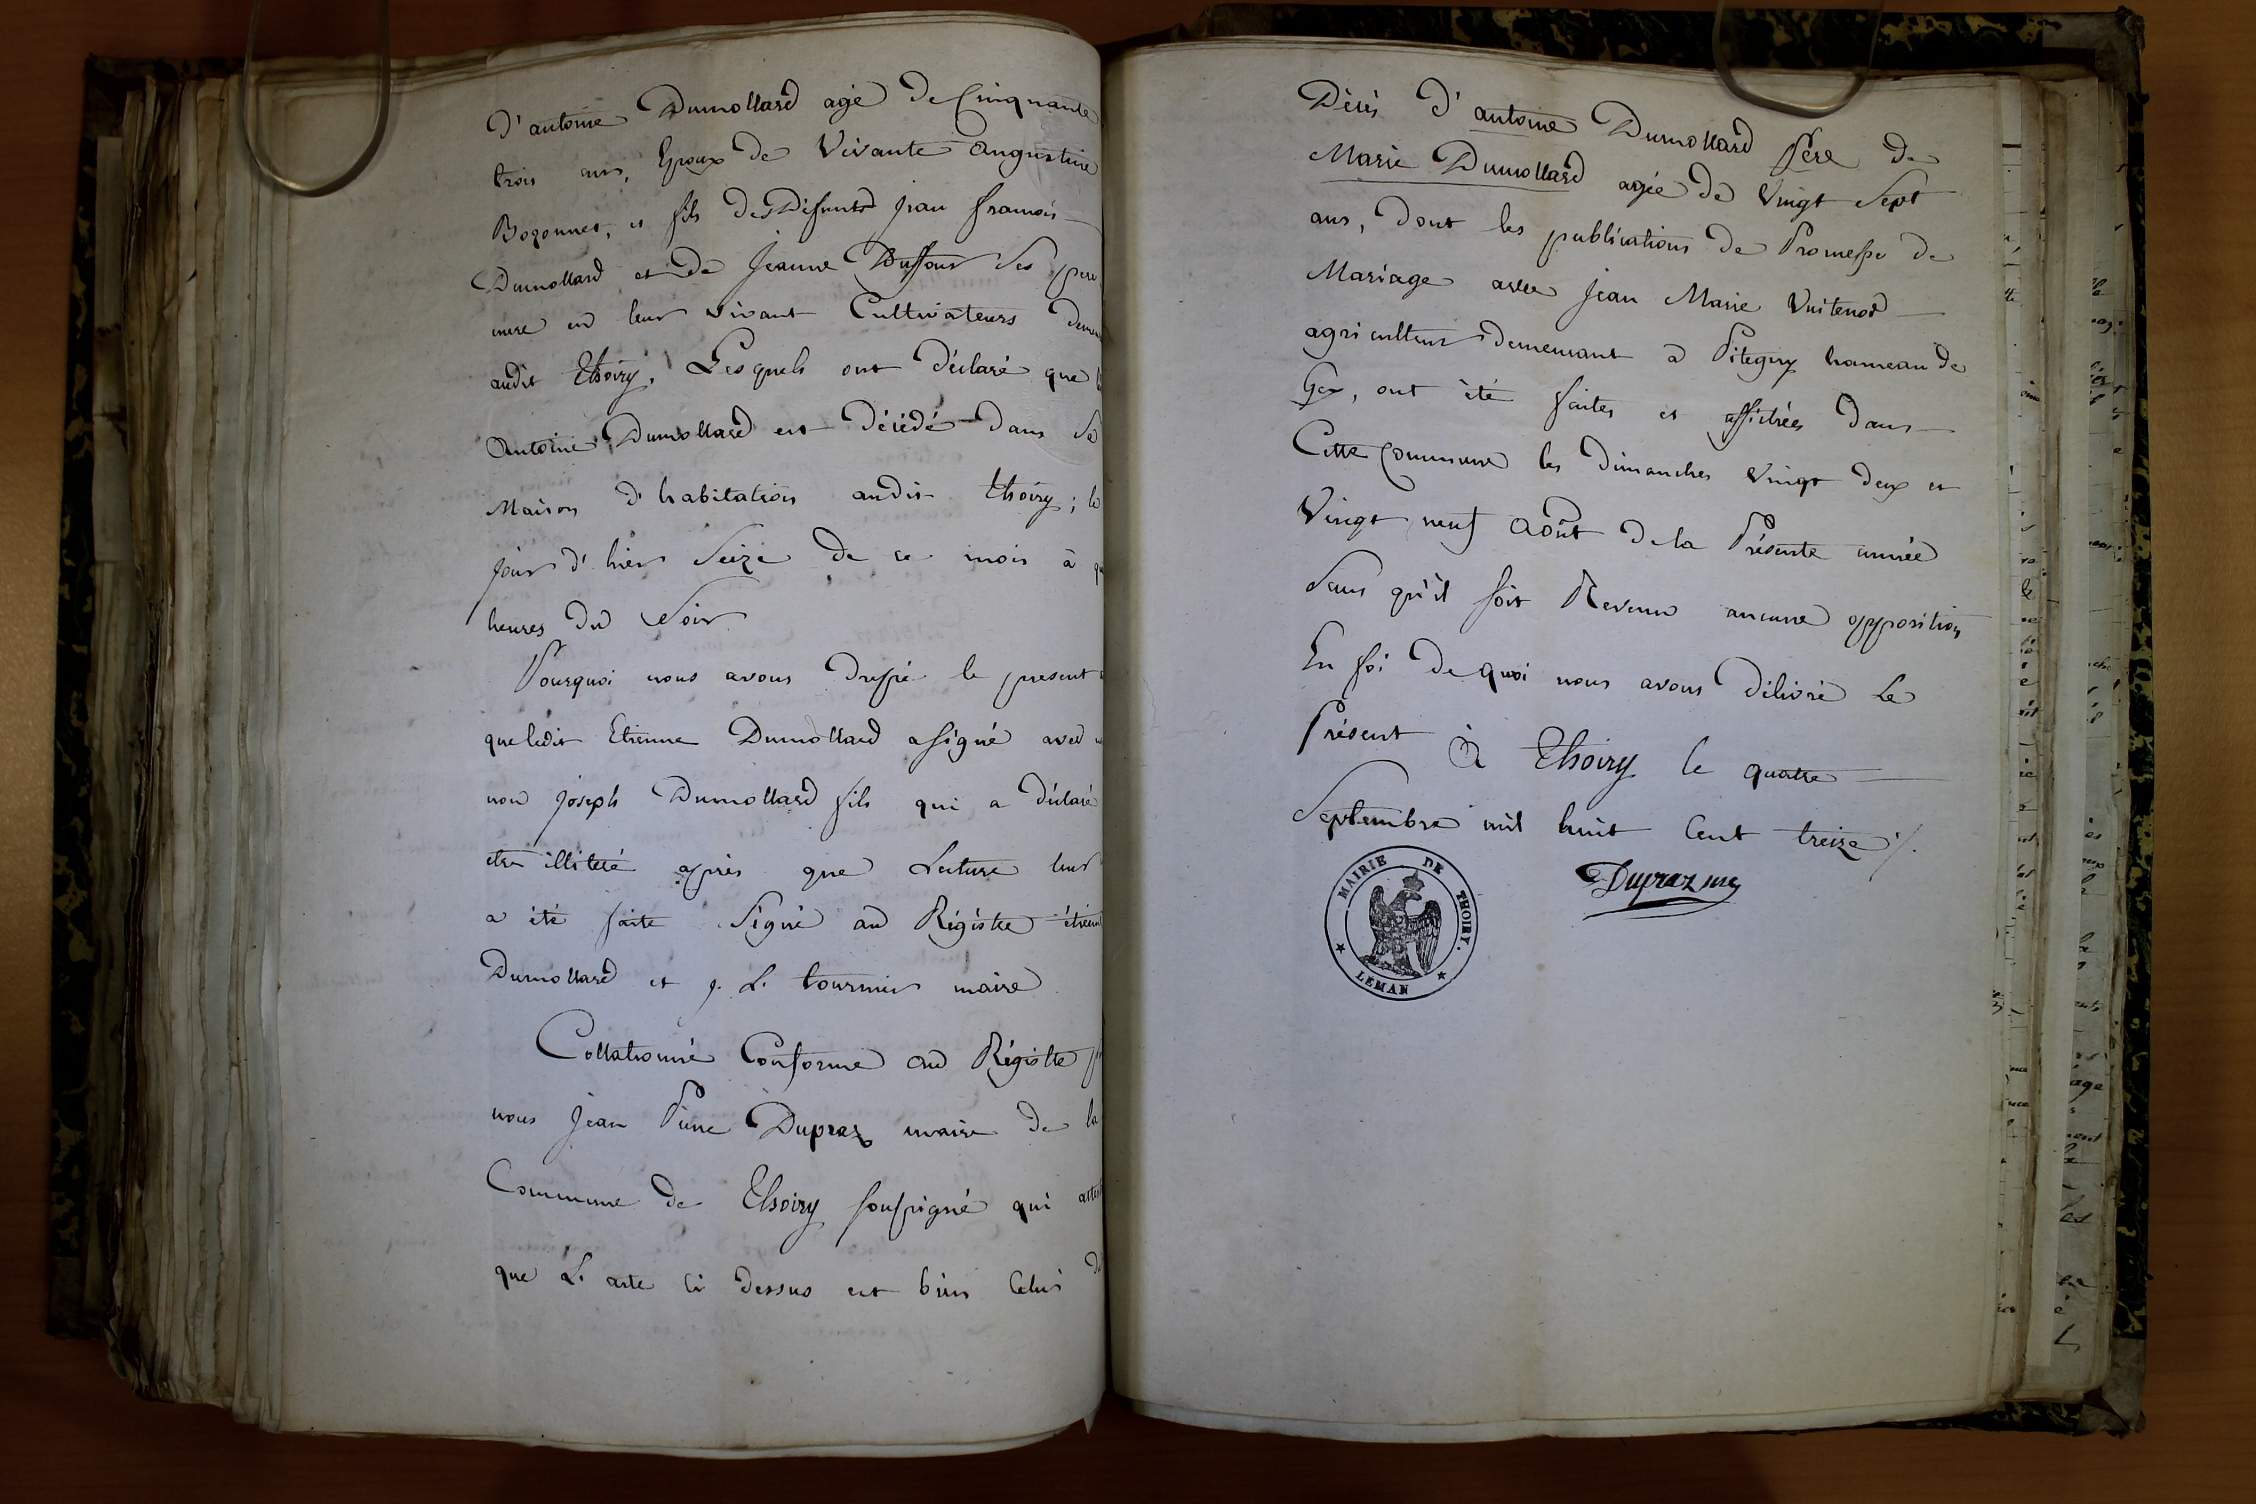 D'antoine Dumollard agé de Cinquante
trois ans, Epoux de Vivante Augustine
Bozonnet, et fils des Defunts Jean François
Dumollard et de Jeanne Duffour Ses pere
mere en leur vivant Cultivateurs
audit Thoiry. Lesquels ont déclaré que
Antoine Dumollard est Décédé dans Sa
Maison d'habitation audit thoiry; le
jour d'hier Seize de ce mois à
heures du Soir.
Pourquoi nous avons dressé le present
que ledit Etienne Dumollard a signé avec
non Joseph Dumollard fils qui a déclaré
etre illiteré après que Lecture leur
a été faite Signé au Régistre étienne
Dumollard et j. L. tournier maire
Collationné Conforme au Régistre
nous Jean Pierre Dupraz maire de la
Commune de Thoiry soussigné qui
que L'acte ci dessus est bien Celui
Décès d'antoine Dumollard Père de
Marie Dumollard agée de Vingt Sept
ans, dont les publications de Promesse de
Mariage avec Jean Marie Vuitenod
agriculteur demeurant a Pitegny hameau de
Gex, ont été faites et affichées dans
Cette Commune les dimanches vingt deux et
Vingt neuf Août de la Présente année
Sans qu'il soit Revenu aucune opposition
En foi de quoi nous avons délivré Le
Présent à Thoiry le quatre
Septembre mil huit Cent treize ./.
Dupraz
MAIRIE DE THOIRY.
LÉMAN